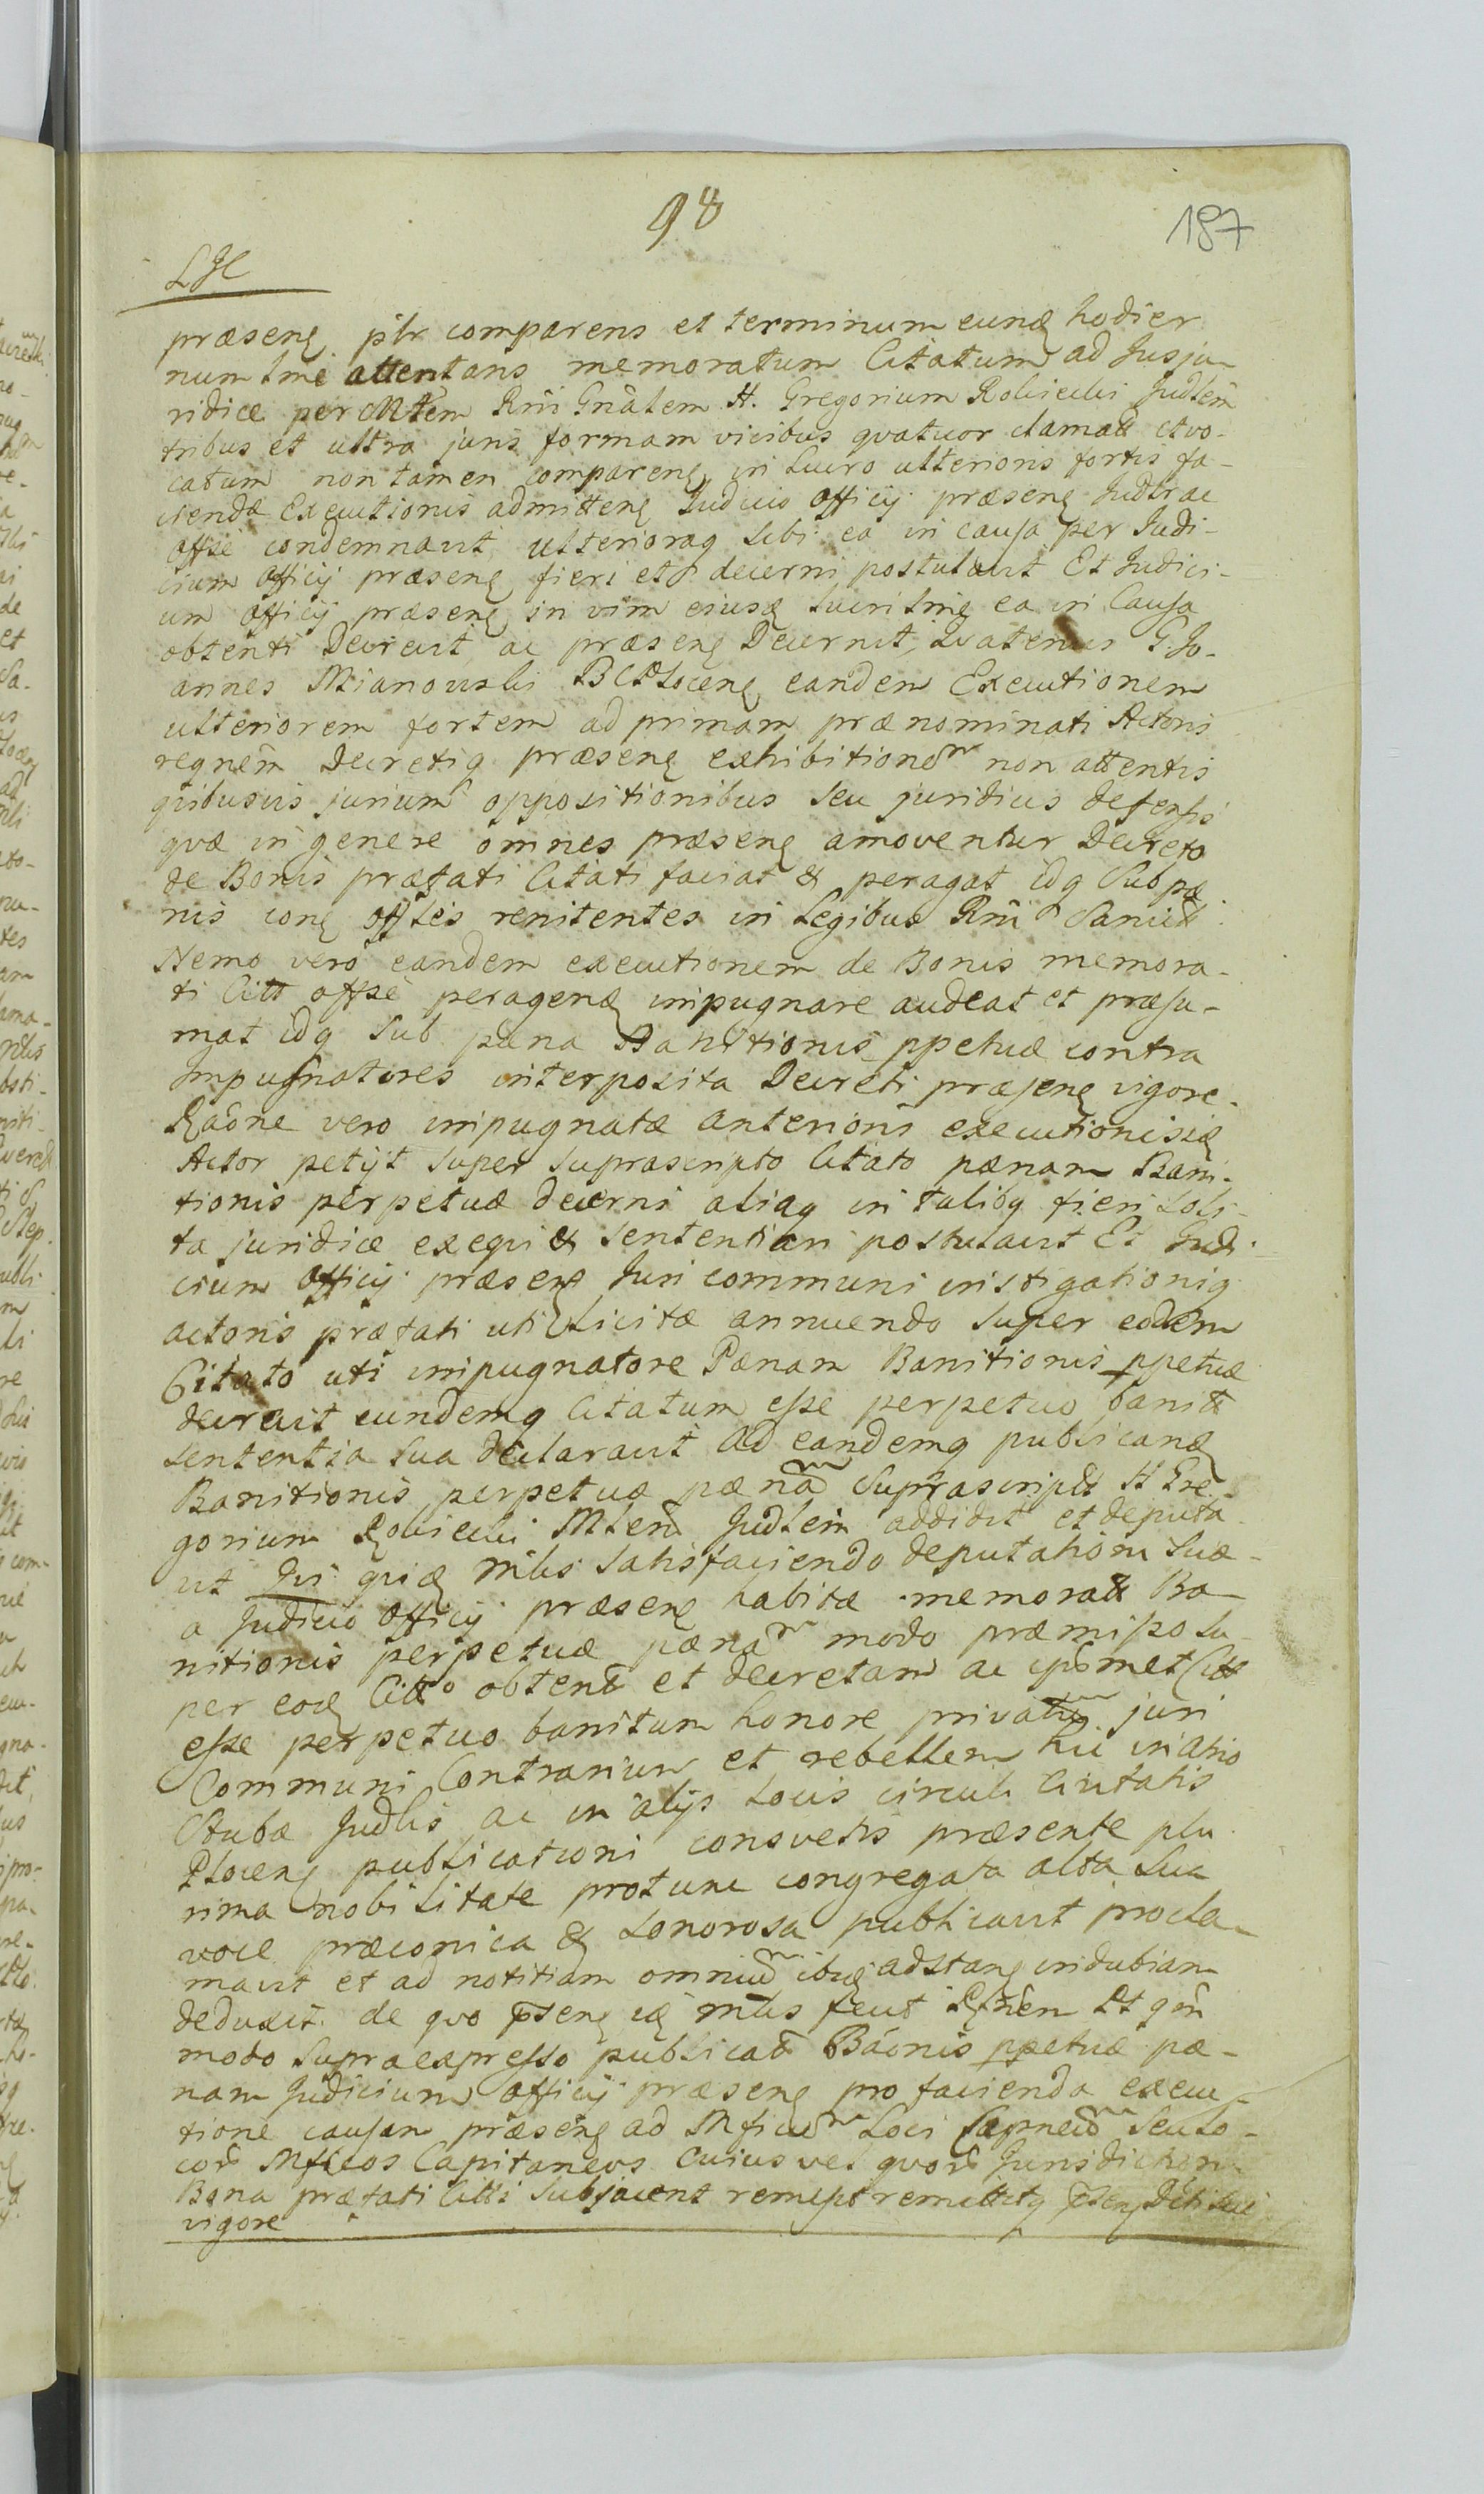 98
187
LJC
præsenē pltr comparens et terminum eundē hodier
num lmē attentans memoratum Citatum ad Jusju
ridice per Mtem Rñi Gnãlem H. Gregorium Robiecki Judlem
tribus et ultra juris formam vicibus qvatuor clamatt et vo-
catum non tamen comparenē in Lucro ulterioris fortis fa-
ciendæ Executionis admittenē Judicio Officij præsenē Judlr ac
offsē condemnavit, ulterioraq sibi ea in causa per Judi-
cium Officij præsenē fieri et decerni postulavit Et Judici-
um officij præsenē in vim eiusdē lucri lmē ea in Causa
obtenti Decrevit ac præsenē Decernit, Qvatenus G. Jo-
annes Mianowski BCPlocenē eandem Executionem
ulteriorem fortem ad primam prænominati Actoris
reqnem Decretiq præsenē exhibitionem non attentis
qvibusvis jurium oppositionibus seu juridicis defensis
qvæ in genere omnes præsenē amoventur Decreto
de Bonis præfati Citati faciat & peragat idq sub pæ
nis conē offles renitentes in Legibus Rñi Sancitt
Nemo vero eandem executionem de Bonis memora-
ti Citt offse peragendē impugnare audeat et præsu-
mat idq sub pæna Banitionis ppetuæ contra
Impugnatores interposita Decreti præsenē vigore.
Raõne vero impugnatæ anterioris executionis idē
Actor petijt super suprascripto Citato pænam Bani-
tionis perpetuæ decerni aliaq in talibq fieri soli-
ta juridice exeqvi & sententiari postulavit Et Judi-
cium Officij præsenē Juri communi instigationiq
actoris præfati uti licitæ annuendo super eodem
Citato uti impugnatore Pænam Banitionis ppetuæ
decrevit eundemq Citatum esse perpetuo banitt
sententia sua declaravit Ad eandemq publicandē
Banitionis perpetuæ pænam Suprascriptt H Gre-
gorium Robiecki Mtem Judlem addidit et deputa
vit Qvi qvidē Mtlis satisfaciendo deputationi suæ
a Judicio Officij præsenē habitæ memoratt Ba
nitionis perpetuæ pænam modo præmisso su-
per eodē Citto obtentt et decretam ac ipsmet Citt
esse perpetuo banitum honore privatum juri
Communi Contrarium et rebellem hic in atrio
Stubæ Judlis ac in alijs Locis circuli Civitatis
Plocenē publicationi consvetis præsente plu
rima nobilitate protunc congregata alta sua
voce præconica & sonorosa publicavit procla-
mavit et ad notitiam omnium ibidē adstanē indubiam
deduxit. de qvo præsenē idē Mtlis fecit Rlñem Et qm̃
modo supraexpresso publicatt Bãonis ppetuæ pæ-
nam Judicium Officij præsenē pro facienda execu-
tione causam præsenē ad Mficum Loci Capneum seu Lo-
corum Mficos Capitaneos cuius vel qvorum Jurisdictioni
Bona præfati Citti subjacent remisit remittitq præsenē Dcti sui
vigore